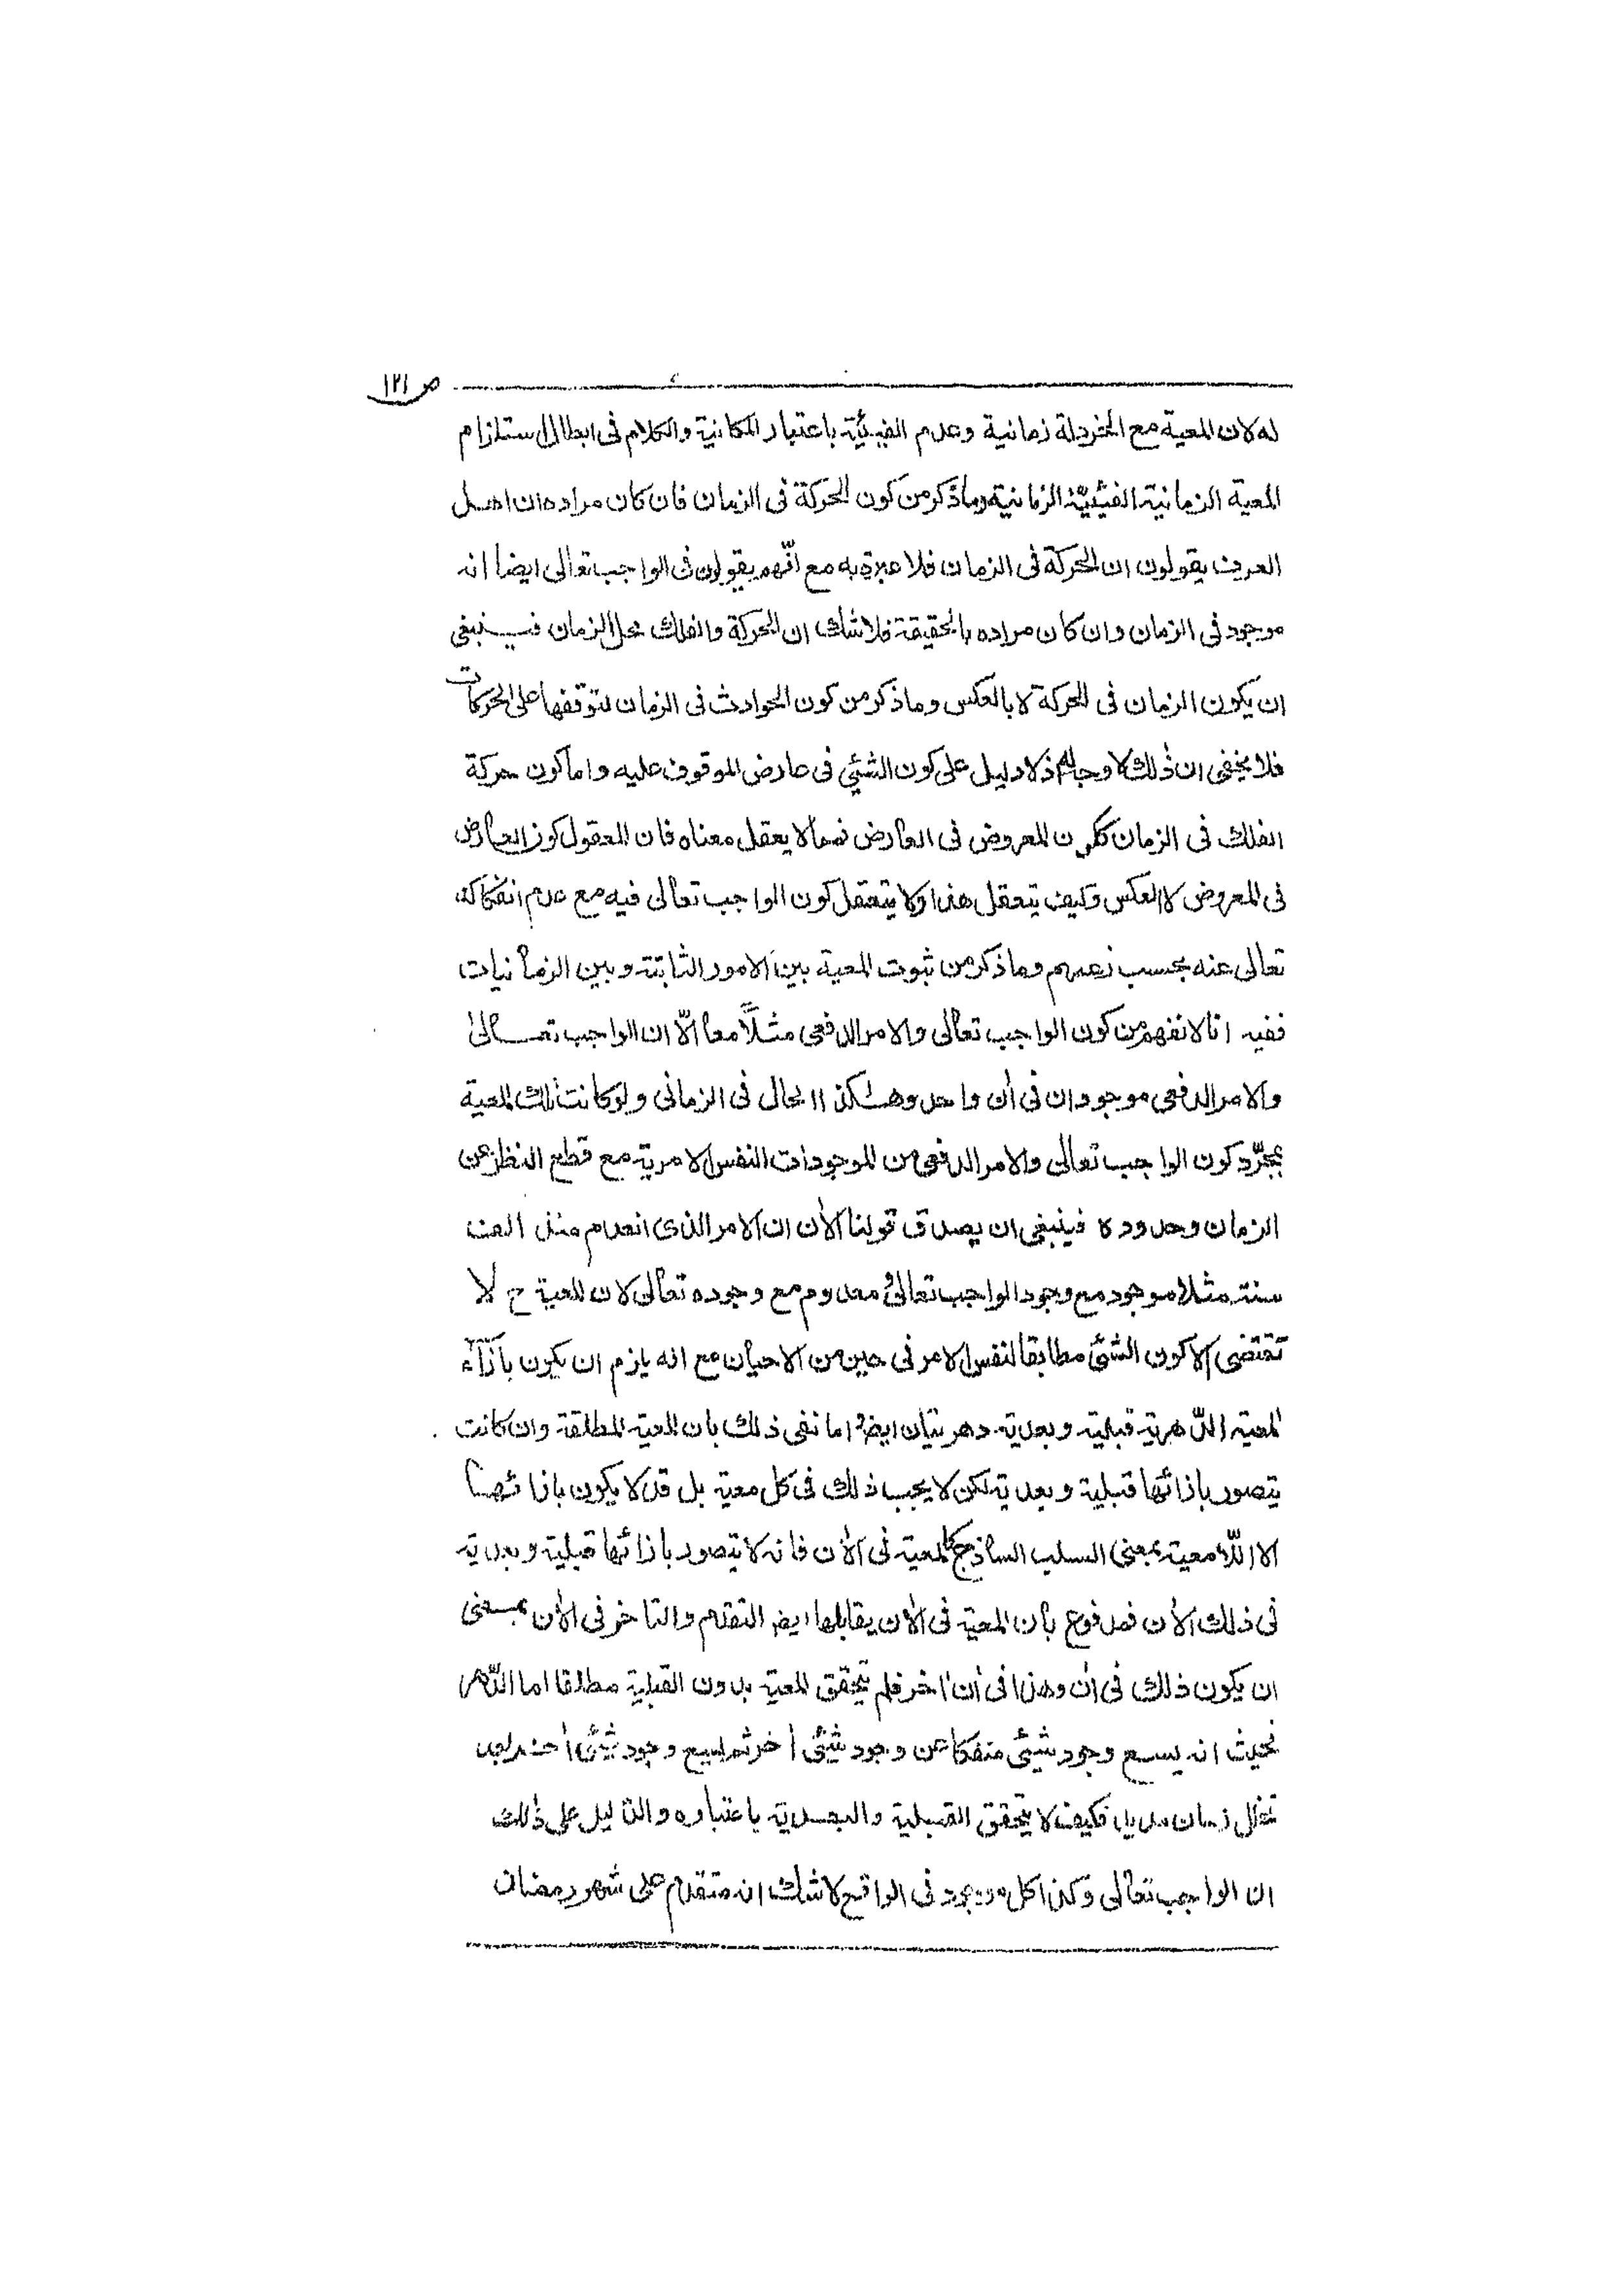 ص ١٢١
له لان المعية مع الخردلة زمانية وعدم الفيئية باعتبار المكانية والكلام فى ابطال استلزام
المعية الزمانية الفيئية الزمانية وماذكر من كون الحركة فى الزمان فان كان مراده ان اهل
العرف يقولون ان الحركة فى الزمان فلا عبرة به مع انّهم يقولون فى الواجب تعالى ايضا انه
موجود فى الزمان وان كان مراده بالحقيقة فلا شك ان الحركة والفلك محل الزمان فينبغى
ان يكون الزمان فى الحركة لا بالعكس وماذكر من كون الحوادث فى الزمان لتوقفها على الحركات
فلا يخفى ان ذلك لا وجه له اذ لا دليل على كون الشئي فى عارض الموقوف عليه واما كون حركة
الفلك فى الزمان ككون المعروض فى العارض فمما لا يعقل معناه فان المعقول كون العارض
فى المعروض لا العكس وكيف يتعقل هذا ولا يتعقل كون الواجب تعالى فيه مع عدم انفكاكه
تعالى عنه بحسب زعمهم وماذكر من ثبوت المعية بين الامور الثابتة وبين الزمانيات
ففيه انا لا نفهم من كون الواجب تعالى والامر الدفعى مثلاً معا الّا ان الواجب تعالى
والامر الدفعى موجودان فى أن واحد وهكذا الحال فى الزمانى ولو كانت تلك المعية
بمجرّد كون الواجب تعالى والامر الدفعى من الموجودات النفس الامرية مع قطع النظر عن
الزمان وحدوده فينبغى ان يصدق قولنا الأن ان الامر الذى انعدم منذ الف
سنة مثلا موجود مع وجود الواجب تعالى معدوم مع وجوده تعالى لان المعية ح لا
تقتضى الا كون الشئ مطابقا لنفس الامر فى حين من الاحيان مع انه يلزم ان يكون بأزآء
المعية الدّهرية قبلية وبعدية دهريتان ايضا اما نفى ذلك بان المعية المطلقة وان كانت
يتصور بازائها قبلية وبعدية لكن لا يجب ذلك فى كل معية بل قد لا يكون بازائها
الا اللّامعية بمعنى السلب الساذج كالمعية فى الأن فانه لا يتصور بازائها قبلية وبعدية
فى ذلك الأن فمدفوع بأن المعية فى الأن يقابلها ايضا التقدم والتاخر فى الأن بمعنى
ان يكون ذلك فى أن وهذا فى أن أخر فلم تتحقق المعية بدون القبلية مطلقا اما الدّهر
فحيث انه يسع وجود شيئى منفكا عن وجود شيئى أخر ثم يسع وجود شيئى أخر بعد
تخلل زمان مديد فكيف لا يتحقق القبلية والبعدية باعتباره والدليل على ذلك
ان الواجب تعالى وكذا كل موجود فى الواقع لا شك انه متقدم على شهر رمضان